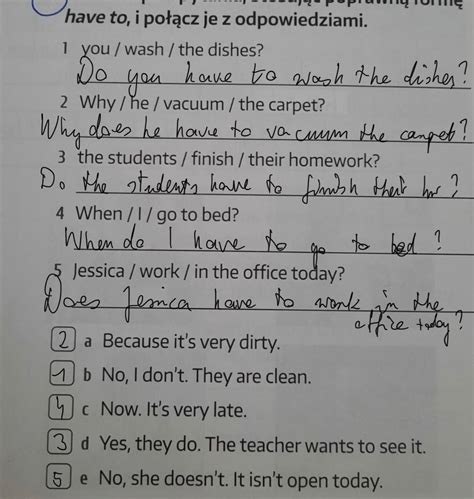 have to, i połącz je z odpowiedziami.
1 you / wash / the dishes?
Do you have to wash the dishes?
2 Why / he / vacuum / the carpet?
Why does he have to vacuum the carpet?
3 the students / finish / their homework?
Do the students have to finish their hw?
4 When / I / go to bed?
When do I have to go to bed?
5 Jessica / work / in the office today?
Does Jessica have to work in the
office today?
2 a Because it's very dirty.
1 b No, I don't. They are clean.
4 c Now. It's very late.
3 d Yes, they do. The teacher wants to see it.
5 e No, she doesn't. It isn't open today.